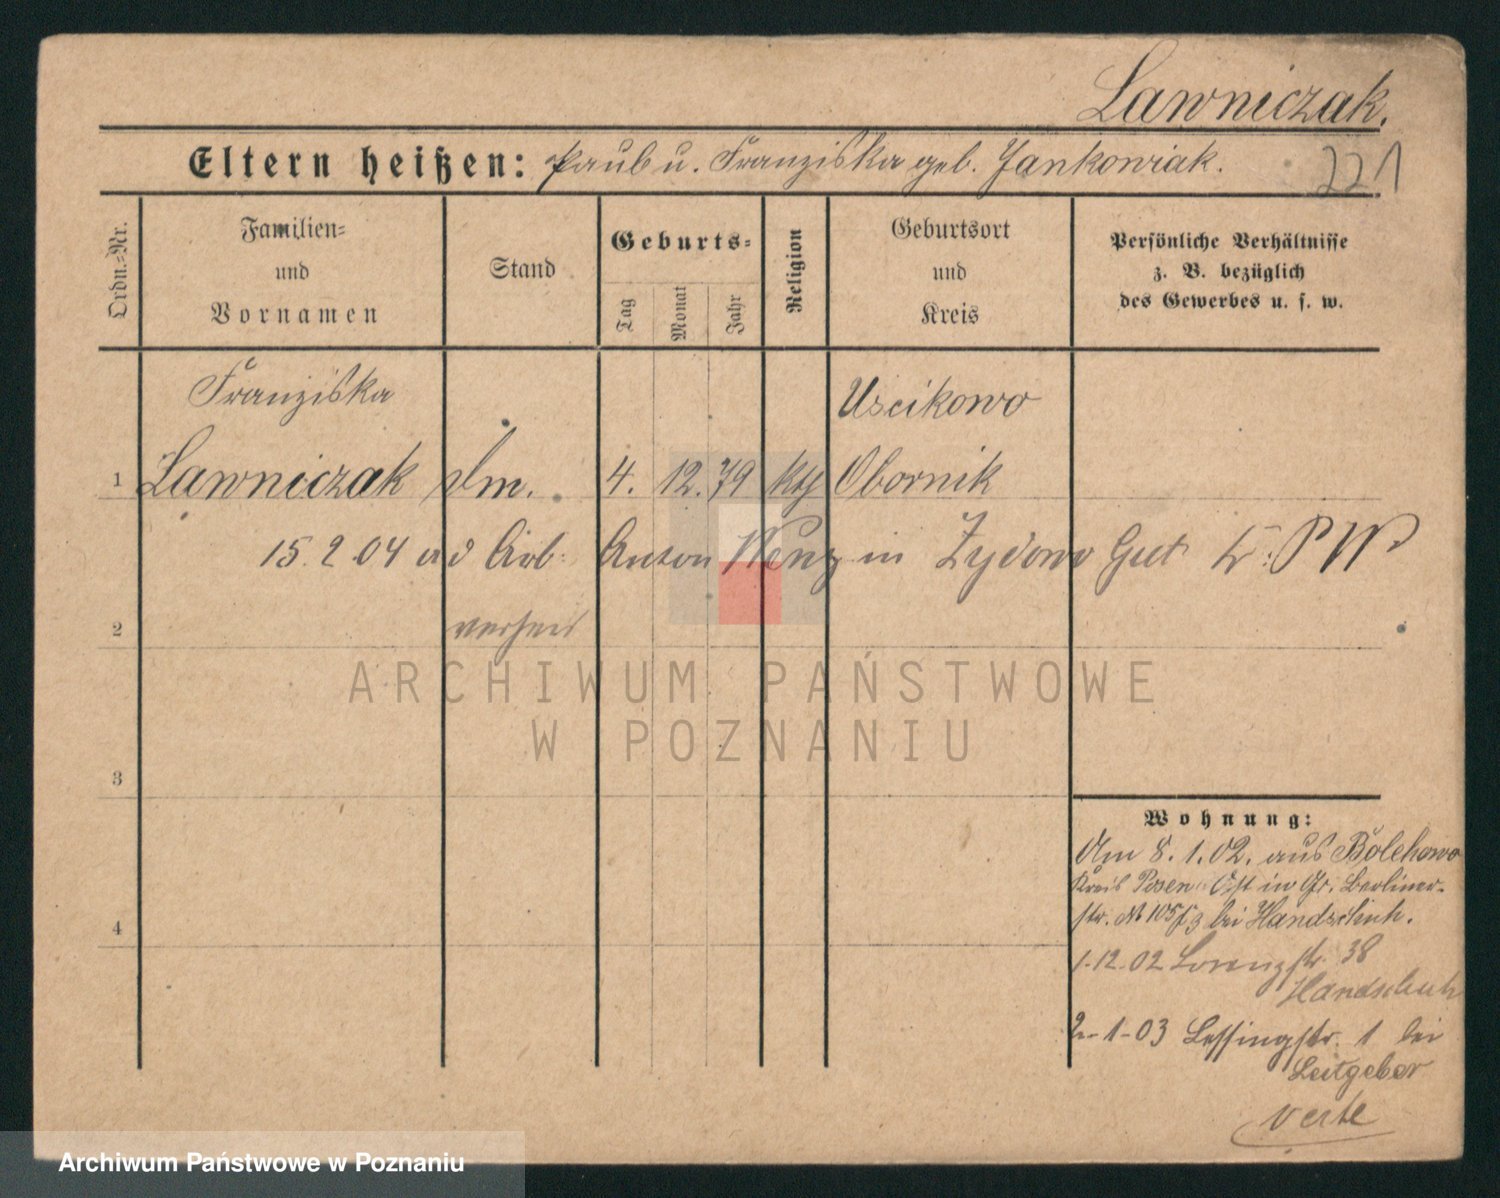 Lawniczak.
Eltern heißen: Paul u. Franziska geb. Jankowiak.
221
Ordn.-Nr.
Familien-
und
Vornamen
Stand
Geburts-
Tag
Monat
Jahr
Religion
Geburtsort
und
Kreis
Persönliche Verhältnisse
z. B. bezüglich
des Gewerbes u. s. w.
Franziska
Uscikowo
1 Lawniczak Dm. 4. 12. 79 kth Obornik
15. 2 04 a d Arb: Anton in Zydowo Gut Kr: P W
2 verheir
ARCHIWUM PAŃSTWOWE
W POZNANIU
3
4
Wohnung:
Am 8. 1. 02. aus Bolehowo
Kreis Posen Ost in Gr. Berliner-
str. № 105 bei Handschuh.
1-12-02 Lorenzstr. 38
Handschuh
2-1-03 Lessingstr. 1 bei
Leitgeber
verte
Archiwum Państwowe w Poznaniu